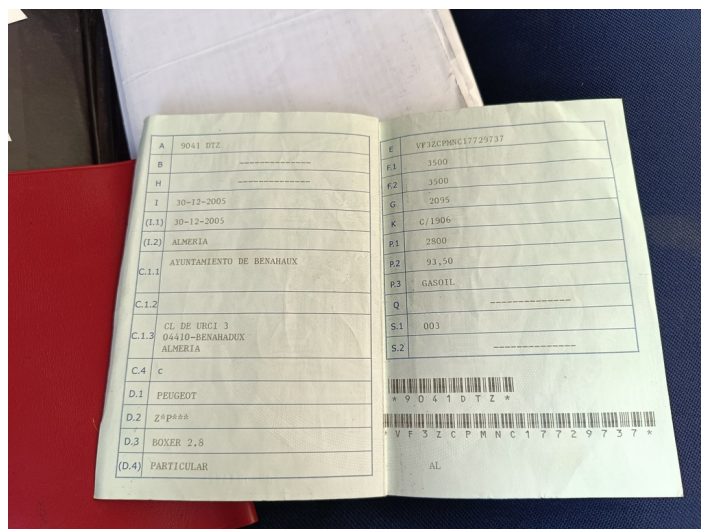 A 9041 DTZ
B --------------
H --------------
I 30-12-2005
(I.1) 30-12-2005
(I.2) ALMERIA
C.1.1 AYUNTAMIENTO DE BENAHAUX
C.1.2
C.1.3 CL DE URCI 3
04410-BENAHADUX
ALMERIA
C.4 c
D.1 PEUGEOT
D.2 Z*P***
D.3 BOXER 2,8
(D.4) PARTICULAR
E VF3ZCPMNC17729737
F.1 3500
F.2 3500
G 2095
K C/1906
P.1 2800
P.2 93,50
P.3 GASOIL
Q --------------
S.1 003
S.2 --------------
*9041DTZ*
*VF3ZCPMNC17729737*
AL